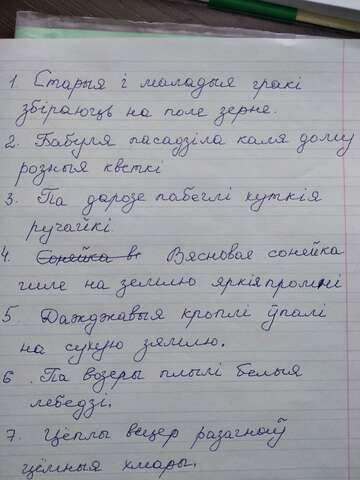 1. Старыя і маладыя гракі
збіраюць на поле зерне.
2. Бабуля пасадзіла каля дому
розныя кветкі
3. Па дарозе пабеглі хуткія
ручайкі.
4. Сонейка в Вясновае сонейка
шле на землю яркія промні
5. Дажджавыя кроплі ўпалі
на сухую зямлю.
6. Па возеры плылі белыя
лебедзі.
7. Цёплы вецер разагнаў
цёмныя хмары.